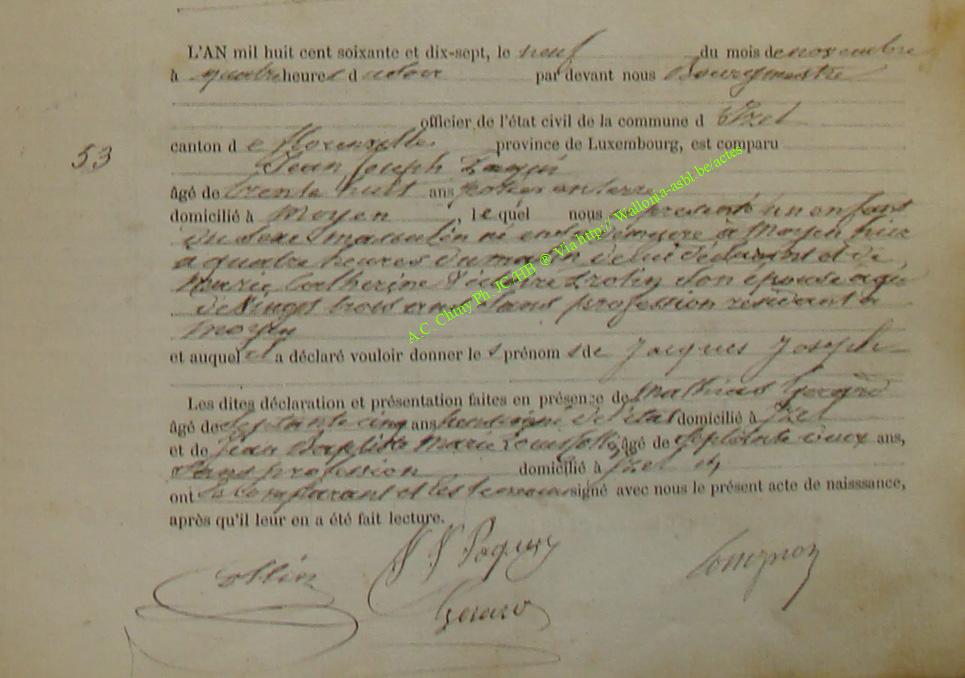 L'AN mil huit cent soixante et dix-sept, le neuf du mois de novembre
à quatre heures du soir par devant nous Bourgmestre
officier de l'état civil de la commune d'Izel
canton de Florenville province de Luxembourg, est comparu
53
Jean Joseph
âgé de trente huit ans potier en terre
domicilié à Moyen, lequel nous a présenté un enfant
du sexe masculin né en sa demeure à Moyen hier
à quatre heures du matin de lui déclarant et de
Marie Catherine son épouse agée
de vingt trois ans sans profession résidant à
Moyen
et auquel il a déclaré vouloir donner les prénoms de Jacques Joseph
Les dites déclaration et présentation faites en présence de Mathias Gerard
âgé de septante cinq ans pensionné de l'état domicilié à Izel
et de Jean Baptiste Marie âgé de septante deux ans,
sans profession domicilié à Izel et
ont le comparant et les témoins signé avec nous le présent acte de naisssance,
après qu'il leur en a été fait lecture.
Collin J J Paquis
Gerard
A.C. Chiny Ph. JC/HB ® Via http:// Wallonia-asbl.be/actes